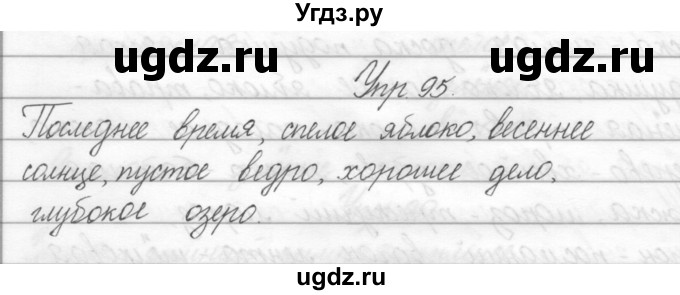 Угдз.ру
ugdz.ru ugdz.ru
Упр. 95.
Последнее время, спелое яблоко, весеннее
солнце, пустое ведро, хорошее дело,
глубокое озеро.
ugdz.ru